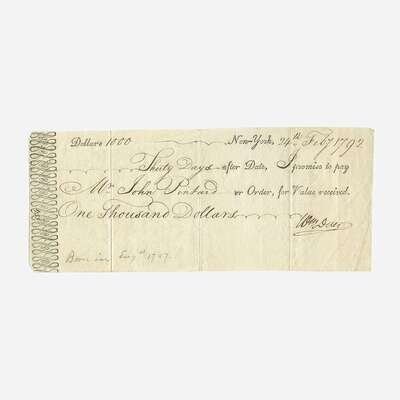 Dollars 1000 New-York, 24th Feby 1792
Thirty Days after Date, I promise to pay
Mr John Pintard or Order, for Value received.
One Thousand Dollars
Wm Duer
Born in Eng'd 1747.